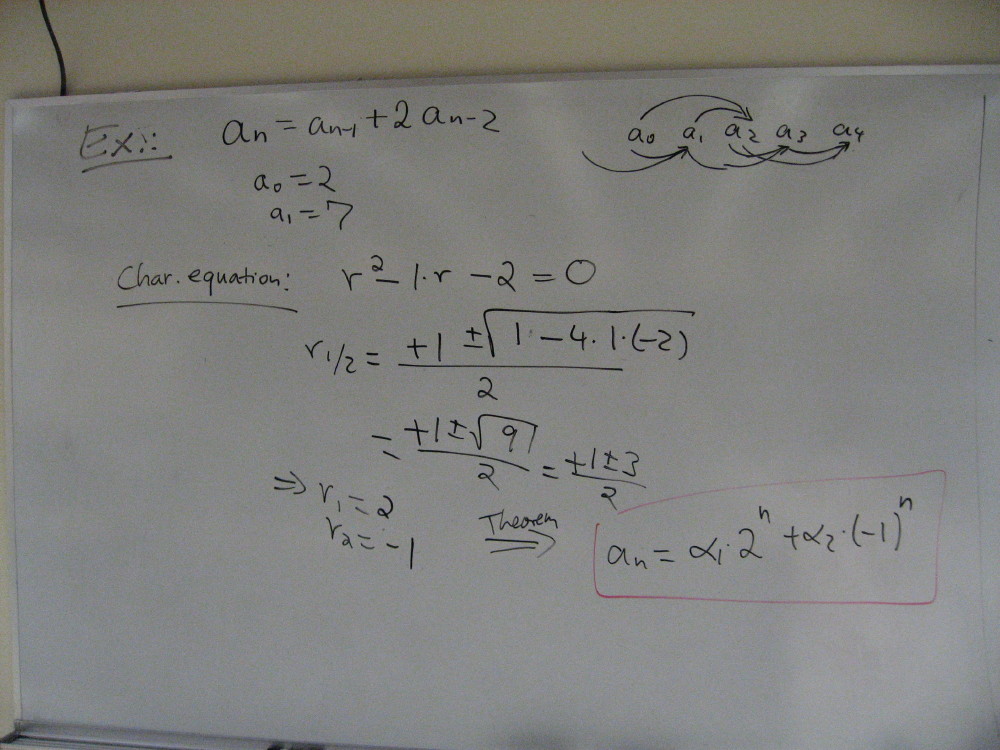 Ex.: aₙ = aₙ₋₁ + 2 aₙ₋₂
a₀ a₁ a₂ a₃ a₄
a₀ = 2
a₁ = 7
Char. equation: r² - 1·r - 2 = 0
r₁/₂ = (+1 ± √(1 - 4·1·(-2))) / 2
= (+1 ± √9) / 2 = (+1 ± 3) / 2
⇒ r₁ = 2
r₂ = -1
Theorem ⇒ aₙ = α₁·2ⁿ + α₂·(-1)ⁿ